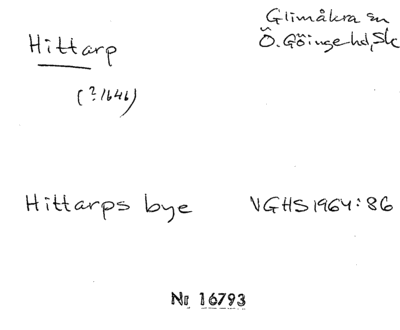 Hittarp
Glimåkra sn
Ö. Göinge hd, Sk
(?1646)
Hittarps bye
VGHS 1964:86
Nr 16793